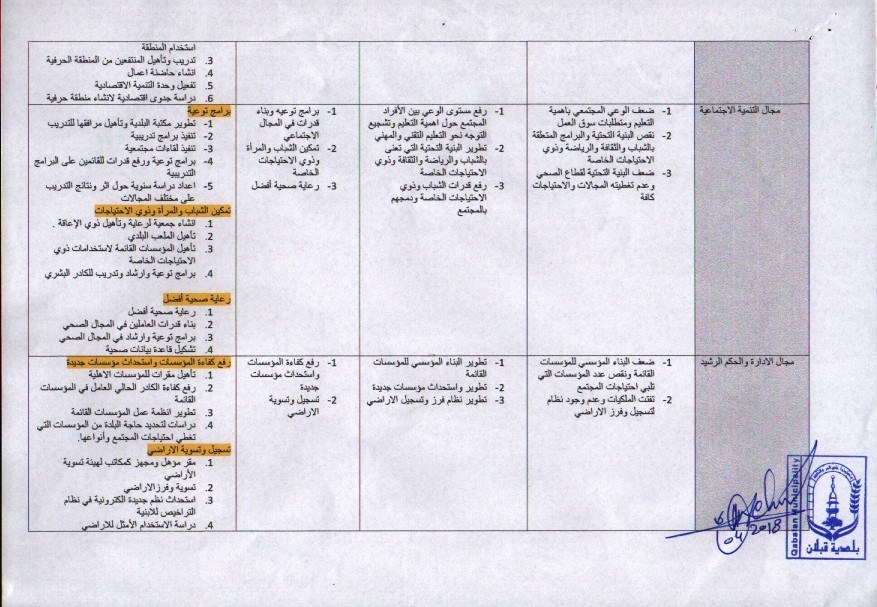 استخدام المنطقة
3. تدريب وتأهيل المنتفعين من المنطقة الحرفية
4. انشاء حاضنة اعمال
5. تفعيل وحدة التنمية الاقتصادية
6. دراسة جدوى اقتصادية لانشاء منطقة حرفية
مجال التنمية الاجتماعية
1- ضعف الوعي المجتمعي باهمية
التعليم ومتطلبات سوق العمل
2- نقص البنية التحتية والبرامج المتعلقة
بالشباب والثقافة والرياضة وذوي
الاحتياجات الخاصة
3- ضعف البنية التحتية لقطاع الصحي
وعدم تغطيته المجالات والاحتياجات
كافة
1- رفع مستوى الوعي بين الأفراد
المجتمع حول اهمية التعليم وتشجيع
التوجه نحو التعليم التقني والمهني
2- تطوير البنية التحتية التي تعنى
بالشباب والرياضة والثقافة وذوي
الاحتياجات الخاصة
3- رفع قدرات الشباب وذوي
الاحتياجات الخاصة ودمجهم
بالمجتمع
1- برامج توعيه وبناء
قدرات في المجال
الاجتماعي
2- تمكين الشباب والمرأة
وذوي الاحتياجات
الخاصة
3- رعاية صحية أفضل
برامج توعية
1- تطوير مكتبة البلدية وتأهيل مرافقها للتدريب
2- تنفيذ برامج تدريبية
3- تنفيذ لقاءات مجتمعية
4- برامج توعية ورفع قدرات للقائمين على البرامج
التدريبية
5- اعداد دراسة سنوية حول اثر ونتائج التدريب
على مختلف المجالات
تمكين الشباب والمرأة وذوي الاحتياجات
1. انشاء جمعية لرعاية وتأهيل ذوي الإعاقة .
2. تأهيل الملعب البلدي
3. تأهيل المؤسسات القائمة لاستخدامات ذوي
الاحتياجات الخاصة
4. برامج توعية وارشاد وتدريب للكادر البشري
رعاية صحية أفضل
1. رعاية صحية أفضل
2. بناء قدرات العاملين في المجال الصحي
3. برامج توعية وارشاد في المجال الصحي
4. تشكيل قاعدة بيانات صحية
مجال الادارة والحكم الرشيد
1- ضعف البناء المؤسسي للمؤسسات
القائمة ونقص عدد المؤسسات التي
تلبي احتياجات المجتمع
2- تفتت الملكيات وعدم وجود نظام
لتسجيل وفرز الاراضي
1- تطوير البناء المؤسسي للمؤسسات
القائمة
2- تطوير واستحداث مؤسسات جديدة
3- تطوير نظام فرز وتسجيل الاراضي
1- رفع كفاءة المؤسسات
واستحداث مؤسسات
جديدة
2- تسجيل وتسوية
الاراضي
رفع كفاءة المؤسسات واستحداث مؤسسات جديدة
1. تأهيل مقرات للمؤسسات الاهلية
2. رفع كفاءة الكادر الحالي العامل في المؤسسات
القائمة
3. تطوير انظمة عمل المؤسسات القائمة
4. دراسات لتحديد حاجة البلدة من المؤسسات التي
تغطي احتياجات المجتمع وأنواعها.
تسجيل وتسوية الاراضي
1. مقر مؤهل ومجهز كمكاتب لهيئة تسوية
الأراضي
2. تسوية وفرزالاراضي
3. استحداث نظم جديدة الكترونية في نظام
التراخيص للابنية
4. دراسة الاستخدام الأمثل للاراضي
Qabalan Municipality
بلدية قبلان
04 2018